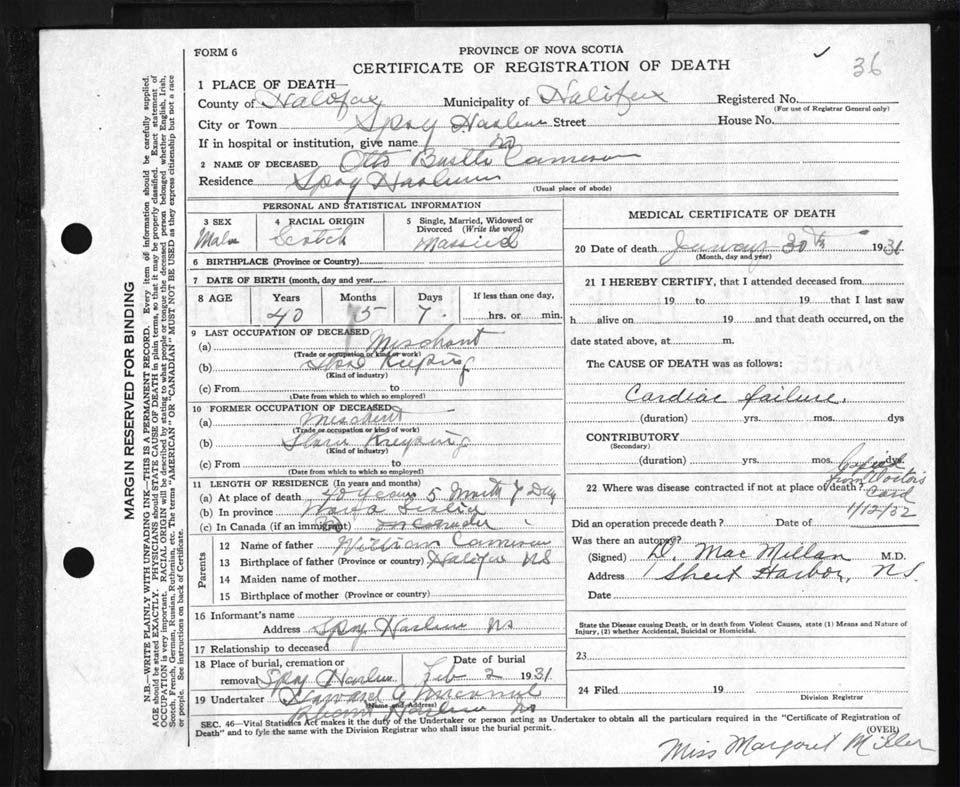 FORM 6
PROVINCE OF NOVA SCOTIA
CERTIFICATE OF REGISTRATION OF DEATH
36
MARGIN RESERVED FOR BINDING
N.B.—WRITE PLAINLY WITH UNFADING INK—THIS IS A PERMANENT RECORD. Every item of information should be carefully supplied.
AGE should be stated EXACTLY. PHYSICIANS should STATE CAUSE OF DEATH in plain terms, so that it may be properly classified. Exact statement of
OCCUPATION is very important. RACIAL ORIGIN will be described by stating to what people or tongue the deceased person belonged whether English, Irish,
Scotch, French, German, Russian, Ruthenian, etc. The terms "AMERICAN" OR "CANADIAN" MUST NOT BE USED as they express citizenship but not a race
or people. See instructions on back of Certificate.
1 PLACE OF DEATH—
County of Halifax Municipality of Halifax Registered No.
(For use of Registrar General only)
City or Town Spry Street House No.
If in hospital or institution, give name
2 NAME OF DECEASED Otto Cameron
Residence Spry
(Usual place of abode)
PERSONAL AND STATISTICAL INFORMATION
3 SEX Male
4 RACIAL ORIGIN Scotch
5 Single, Married, Widowed or Divorced (Write the word) Married
6 BIRTHPLACE (Province or Country)
7 DATE OF BIRTH (month, day and year)
8 AGE Years Months Days If less than one day,
40 5 7 hrs. or min.
9 LAST OCCUPATION OF DECEASED
(a) Merchant
(Trade or occupation or kind of work)
(b) Keeping
(Kind of industry)
(c) From to
(Date from which to which so employed)
10 FORMER OCCUPATION OF DECEASED
(a) Merchent
(Trade or occupation or kind of work)
(b) Keeping
(Kind of industry)
(c) From to
(Date from which to which so employed)
11 LENGTH OF RESIDENCE (In years and months)
(a) At place of death 40 years 5 Month 7 Day
(b) In province Nova
(c) In Canada (if an immigrant)
Parents
12 Name of father William Cameron
13 Birthplace of father (Province or country) Halifax NS
14 Maiden name of mother
15 Birthplace of mother (Province or country)
16 Informant's name
Address Spry NS
17 Relationship to deceased
18 Place of burial, cremation or removal Spry Date of burial Feb 2 1931
19 Undertaker Howard
(Name and Address)
NS
MEDICAL CERTIFICATE OF DEATH
20 Date of death 30th 1931
(Month, day and year)
21 I HEREBY CERTIFY, that I attended deceased from
19 to 19 that I last saw
h alive on 19 and that death occurred, on the
date stated above, at m.
The CAUSE OF DEATH was as follows:
Cardiac failure.
(duration) yrs. mos. dys
CONTRIBUTORY
(Secondary)
(duration) yrs. mos. dys
Copied from Doctor's Card 1/12/32
22 Where was disease contracted if not at place of death?
Did an operation precede death? Date of
Was there an autopsy?
(Signed) D. MacMillan M.D.
Address Sheet Harbor, NS.
Date
State the Disease causing Death, or in death from Violent Causes, state (1) Means and Nature of
Injury, (2) whether Accidental, Suicidal or Homicidal.
23
24 Filed 19
Division Registrar
SEC. 46—Vital Statistics Act makes it the duty of the Undertaker or person acting as Undertaker to obtain all the particulars required in the "Certificate of Registration of
Death" and to fyle the same with the Division Registrar who shall issue the burial permit.
(OVER)
Miss Margaret Miller